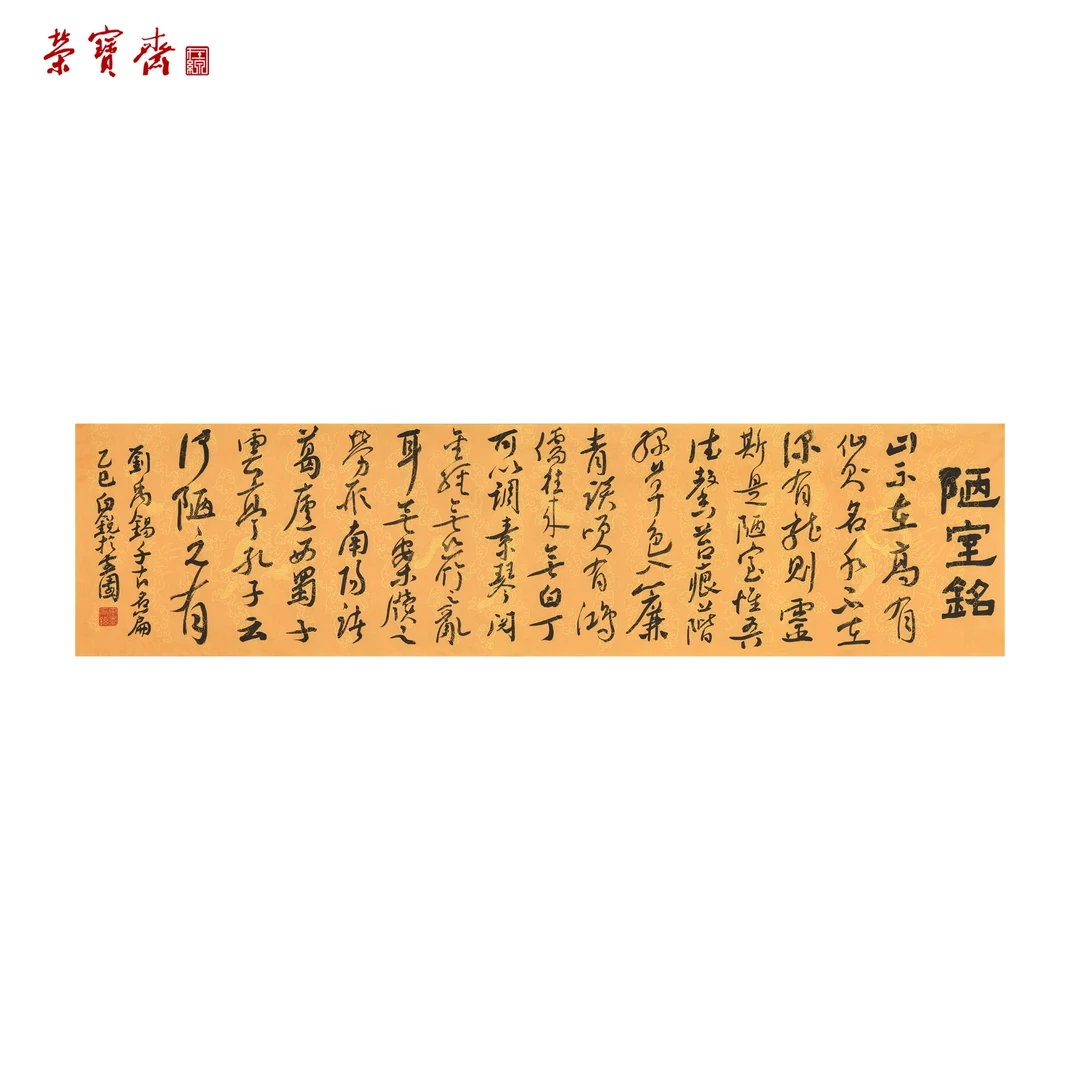 榮寶齋
陋室銘
山不在高有
仙則名水不在
深有龍則靈
斯是陋室惟吾
德馨苔痕階
綠草色入簾
青談笑有鴻
儒往來無白丁
可以調素琴閱
金經無絲竹之亂
耳無案牘之
勞形南陽諸
葛廬西蜀子
雲亭孔子云
何陋之有
劉禹錫千古名篇
乙巳白銳於